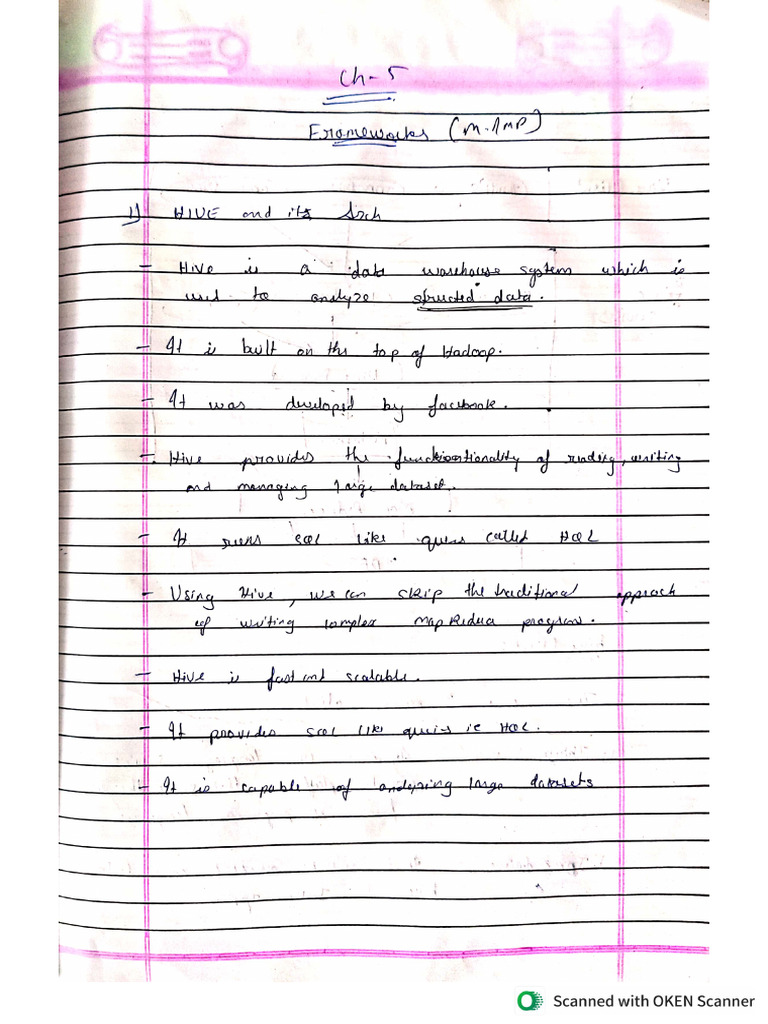 Ch-5
Frameworks (M.IMP)
1) HIVE and its Arch
- Hive is a data warehouse system which is
used to analyze structed data.
- It is built on the top of Hadoop.
- It was developed by facebook.
- Hive provides the functionality of reading, writing
and managing large dataset.
- It runs SQL like quries called HQL
- Using Hive, we can skip the traditional approach
of writing complex MapReduce program.
- Hive is fast and scalable.
- It provides SQL like quries ie HQL.
- It is capable of analyzing large datasets
Scanned with OKEN Scanner